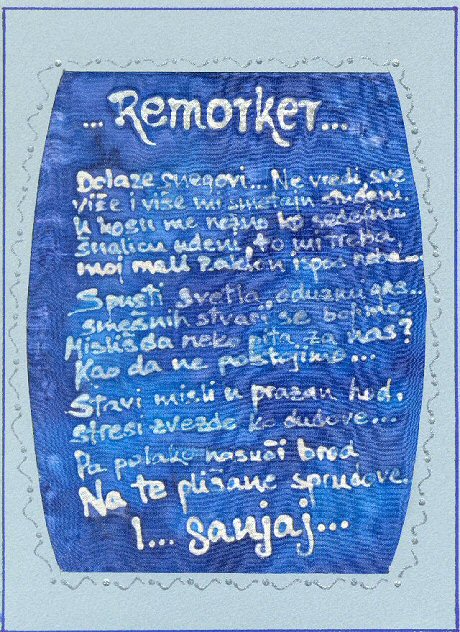 ... Remorker...
Dolaze snegovi... Ne vredi sve
više i više mi smetaju studeni.
U kosu me nežno ko sedefnu
šnalicu udeni, to mi treba,
moj mali zaklon ispod neba...
Spusti svetla, oduzmi gas...
smešnih stvari se bojimo..
Misliš da neko pita za nas?
Kao da ne postojimo...
Stavi misli u prazan hod,
stresi zvezde ko dudove...
Pa polako nasuči brod
Na te plišane sprudove.
I... sanjaj...